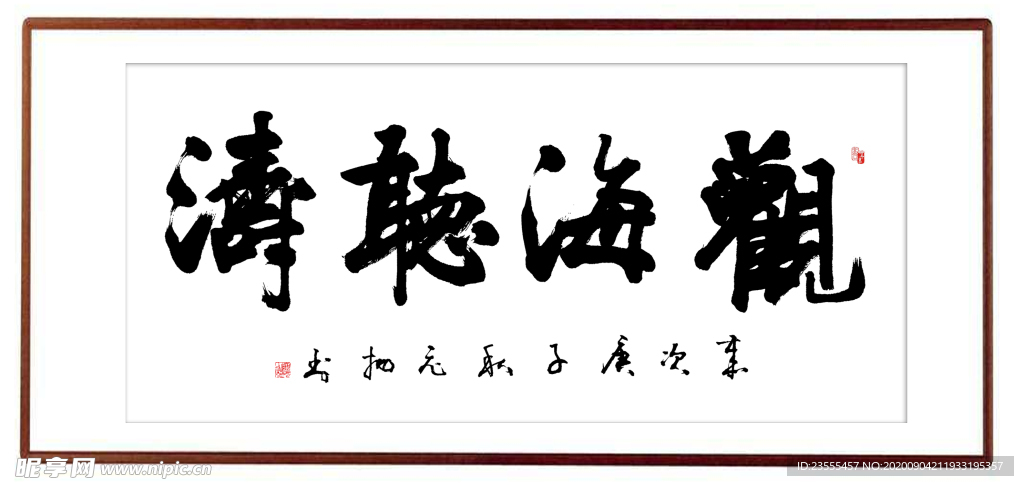 觀海聽濤
歲次庚子秋元坤书
昵享网 www.nipic.cn
ID:23555457 NO:20200904211933195357